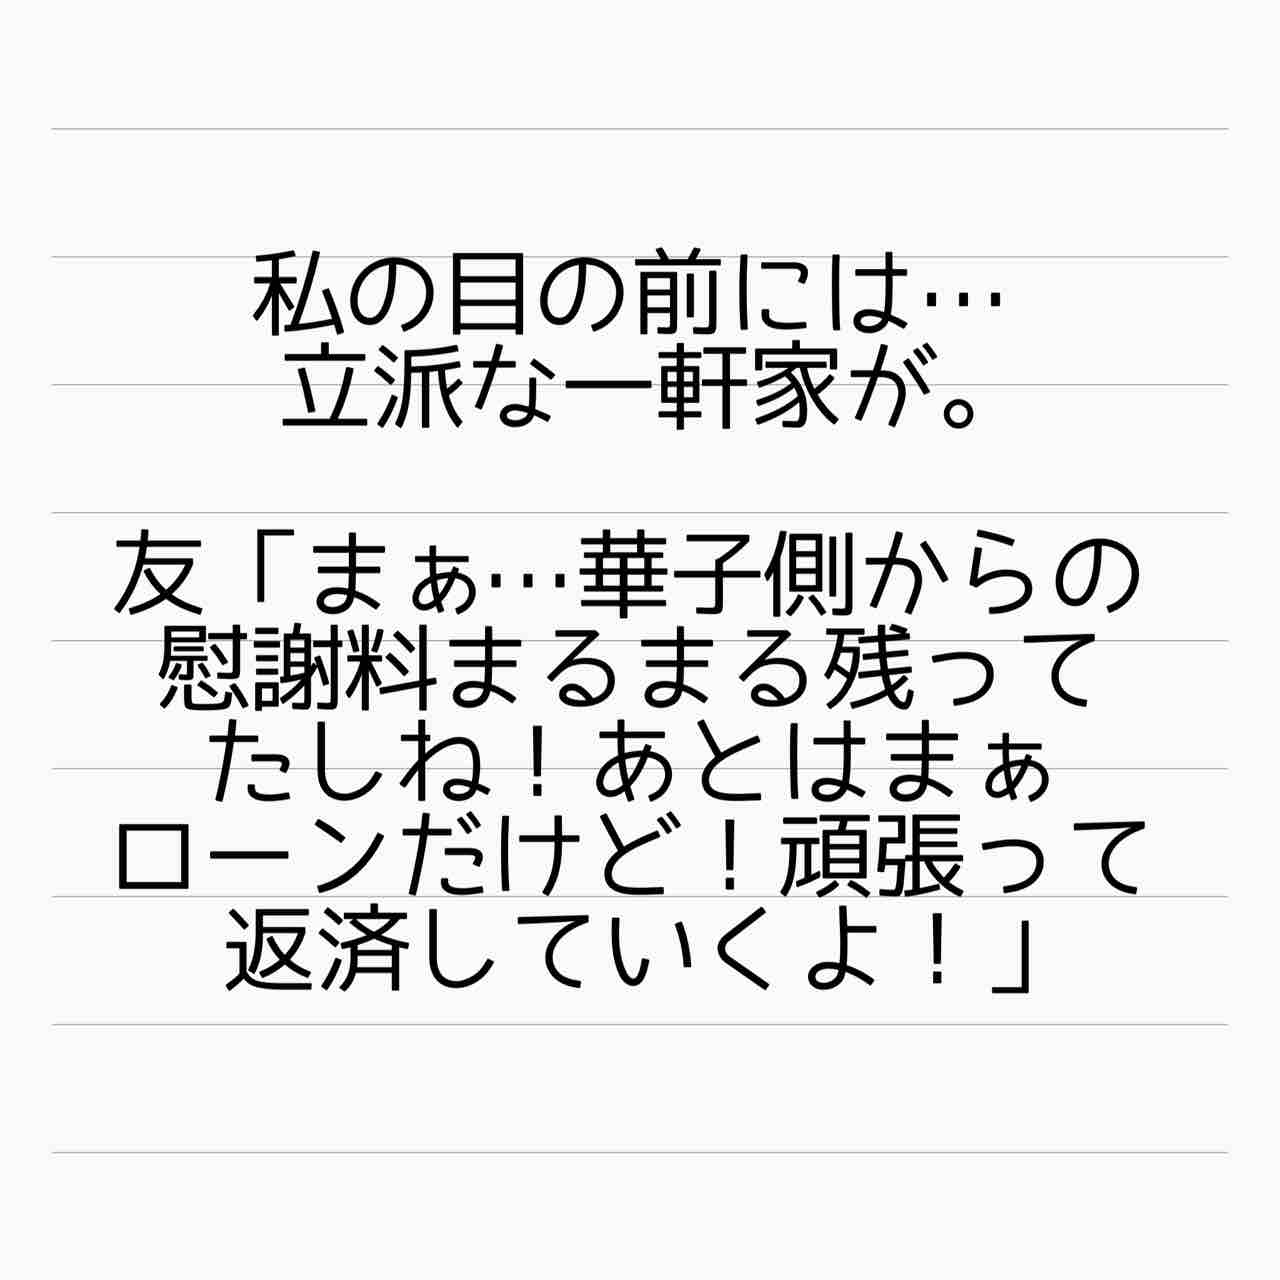 私の目の前には…
立派な一軒家が。
友「まぁ…華子側からの
慰謝料まるまる残って
たしね！あとはまぁ
ローンだけど！頑張って
返済していくよ！」